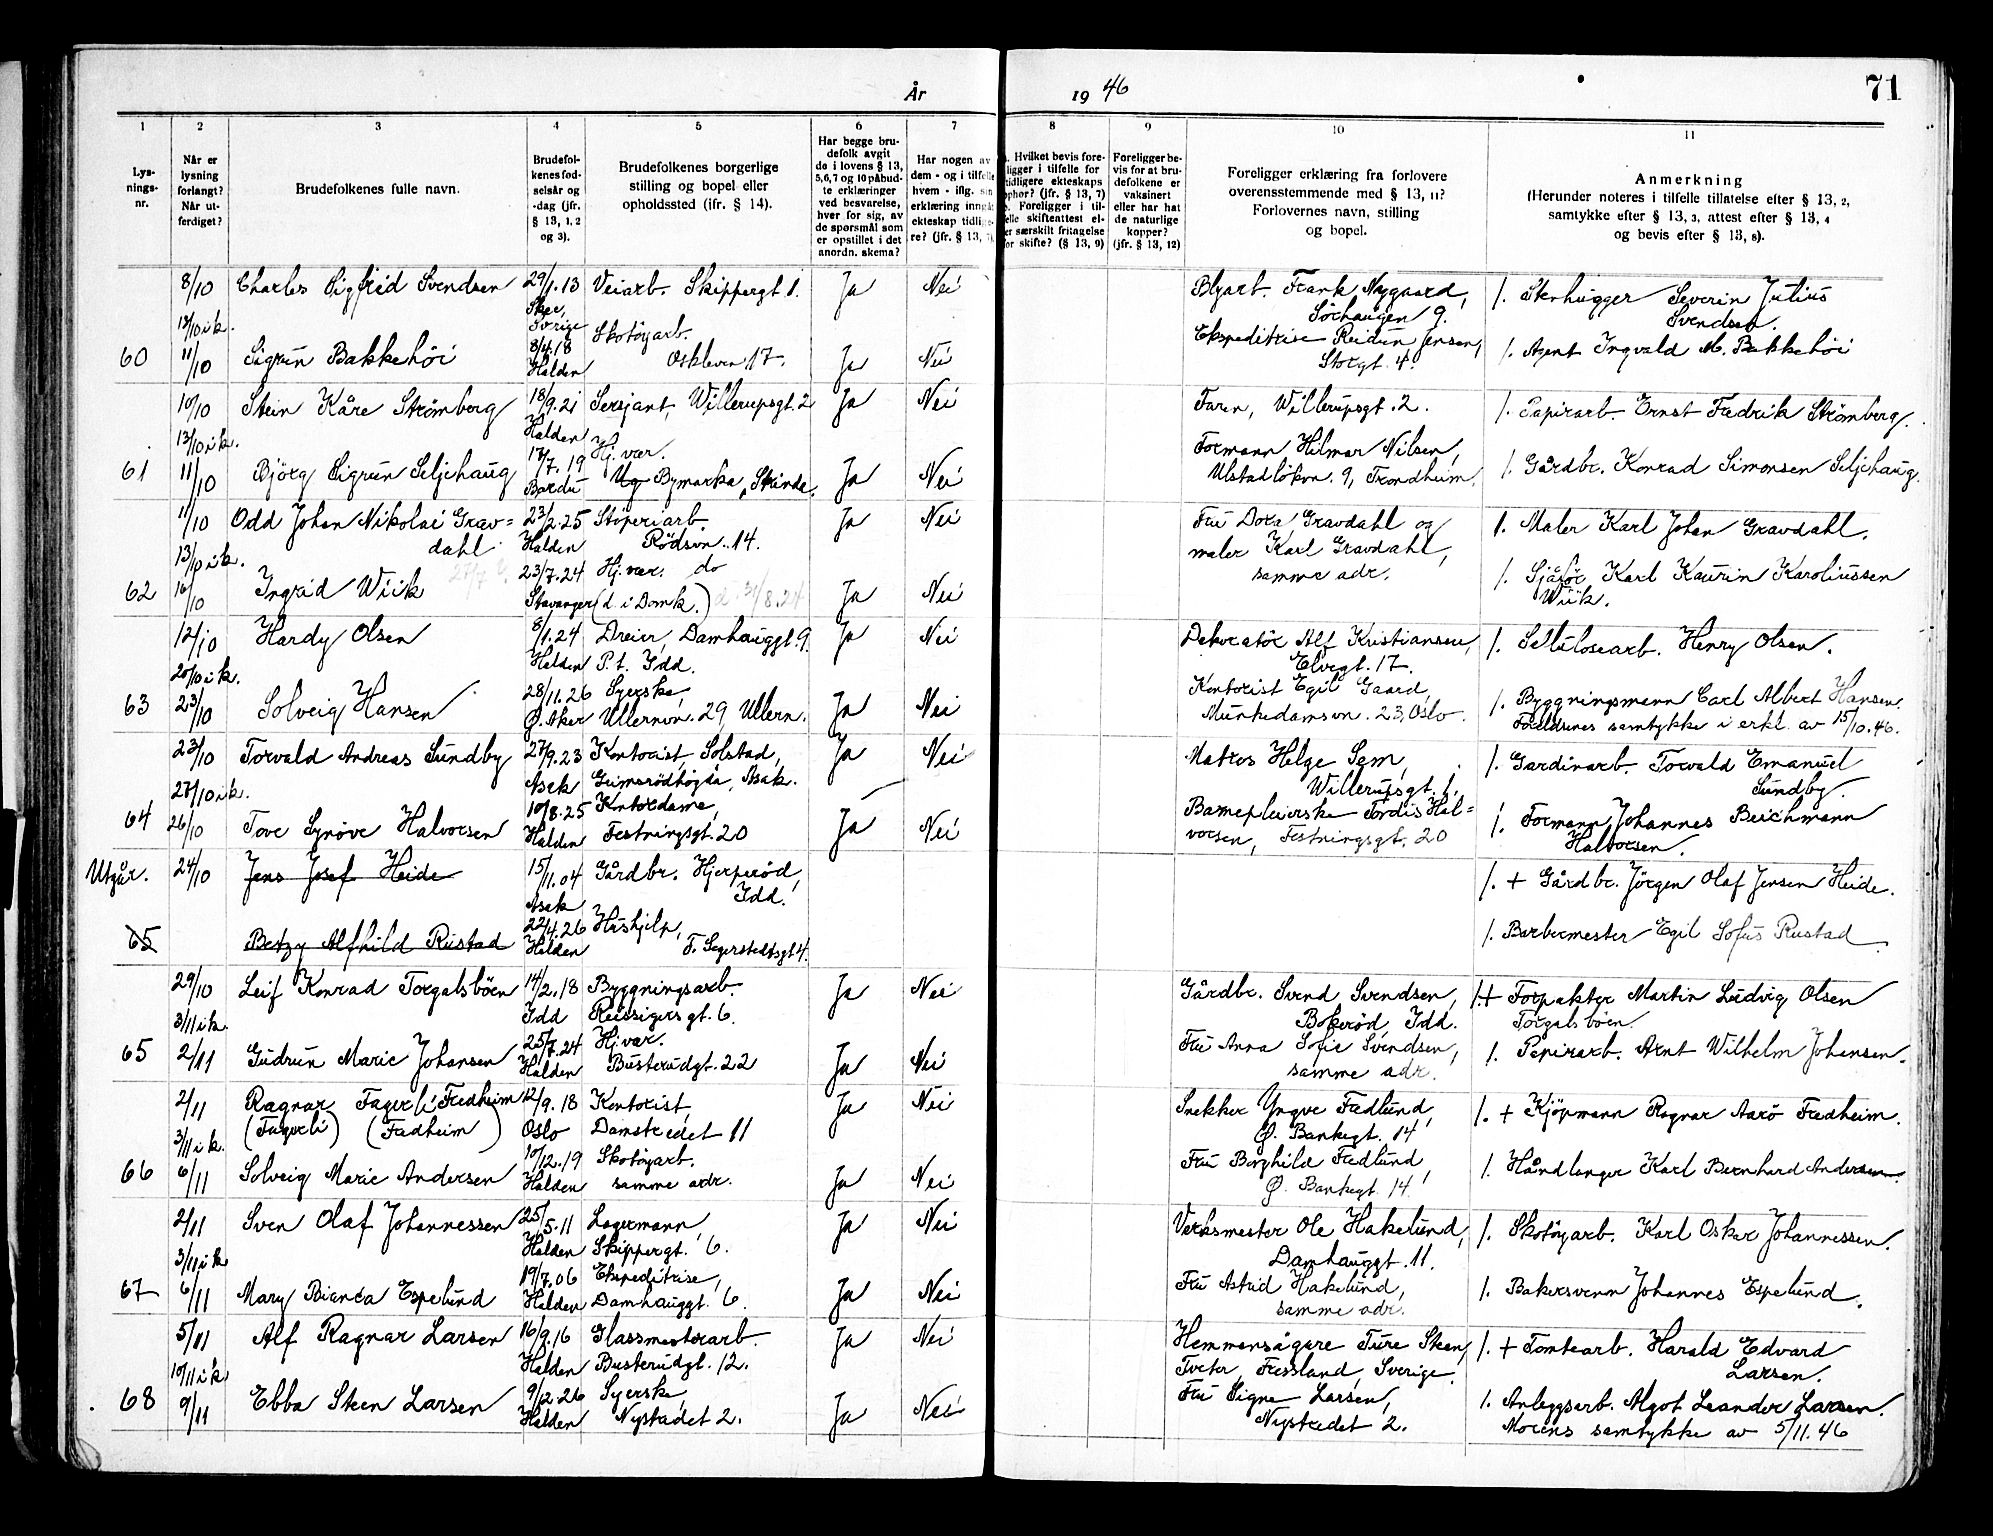 År 19 46
71
1 2 3 4 5 6 7 8 9 10 11
Lys-
nings-
nr.
Når er
lysning
forlangt?
Når ut-
ferdiget?
Brudefolkenes fulle navn.
Brudefol-
kenes fød-
selsår og
-dag (jfr.
§ 13, 1, 2
og 3).
Brudefolkenes borgerlige
stilling og bopel eller
opholdssted (ifr. § 14).
Har begge bru-
defolk avgit
de i lovens § 13,
5,6,7 og 10 påbud-
te erklæringer
ved besvarelse,
hver for sig, av
de spørsmål som
er opstillet i det
anordn. skema?
Har nogen av
dem - og i tilfelle
hvem - iflg. sin
erklæring inngåt
ekteskap tidlige-
re? (jfr. § 13, 7)
. Hvilket bevis fore-
ligger i tilfelle for
tidligere ekteskaps
ophør? (jfr. § 13, 7)
. Foreligger i til-
felle skifteattest el-
er særskilt fritagelse
for skifte? (§ 13, 9)
Foreligger be-
vis for at bru-
defolkene er
vaksinert
eller har hat
de naturlige
kopper?
(jfr. § 13, 12)
Foreligger erklæring fra forlovere
overensstemmende med § 13, 11?
Forlovernes navn, stilling
og bopel.
Anmerkning
(Herunder noteres i tilfelle tillatelse efter § 13, 2,
samtykke efter § 13, 3, attest efter § 13, 4
og bevis efter § 13, 8).
8/10 Charles Sigfrid Svendsen 29/1.13 Veiarb. Skippergt. 1. Ja Nei Blyarb. Frank Nygaard, /. Stenhugger Severin Julius
13/10 i k. Skee, Sverige Sørhaugen 9. Svendsen.
60 11/10 Sigrun Bakkehöi 8/4.18 Halden Skotöyarb. Oskleven 17. Ja Nei Ekspeditrise Reidun Jensen, Storgt. 4. /. Agent Ingvald M. Bakkehöi
10/10 Stein Kåre Strömberg 18/9.21 Halden Sersjant, Willerupsgt. 2 Ja Nei Faren, Willerupsgt. 2. /. Papirarb. Ernst Fredrik Strömberg.
13/10 i k.
61 11/10 Björg Sigrun Seljehaug 17/7.19 Bardu Hj. vær. Ug Bymarka, Strinda. Ja Nei Formann Hilmar Nilsen, Ulstadlökvn. 9, Trondheim. /. Gårdbr. Konrad Simonsen Seljehaug.
11/10 Odd Johan Nikolai Grav=
dahl 23/2.25 Halden Stoperiarb. Rödsvn. 14. Ja Nei Fru Dora Gravdahl og
maler Karl Gravdahl,
samme adr. /. Maler Karl Johan Gravdahl.
13/10 i k.
62 16/10 Ingrid Wiik 23/7.24 Stavanger (d. i Domk.) d. 31/8.24 Hj. vær. do Ja Nei /. Sjåför Karl Kaurin Karoliussen
Wiik.
12/10 Hardy Olsen 8/1.24 Halden Dreier, Damhauggt. 9. P.t. Idd. Ja Nei Dekoratör Alf Kristiansen,
Elvegt. 17. /. Selulosearb. Henry Olsen.
20/10 i k.
63 23/10 Solveig Hansen 28/11.26 Ø. Aker Syerske, Ullernvn. 29 Ullern. Ja Nei Kontorist Egil Gaard,
Munkedamsvn. 23, Oslo. /. Byggningsmann Carl Albert Hansen.
Foreldrenes samtykke i erkl. av 15/10.46.
23/10 Torvald Andreas Sundby 27/9.23 Asak Kontorist, Solstad, Grimsrödhögda, Asak. Ja Nei Matros Helge Sem,
Willerupsgt. 1. /. Gardinarb. Torvald Emanuel
Sundby.
27/10 i k.
64 26/10 Tove Synöve Halvorsen 10/8.25 Halden Kontordame, Festningsgt. 20 Ja Nei Barnepleierske Tordis Hal=
vorsen, Festningsgt. 20 /. Formann Johannes Beichmann
Halvorsen.
Utgår. 24/10 Jens Josef Heide 15/11.04 Asak Gårdbr. Hjerperöd, Idd. /. + Gårdbr. Jörgen Olaf Jensen Heide.
65 Betzy Alfhild Rustad 22/4.26 Halden Hushjelp, T. Segerstedtsgt. 4. /. Barbermester Egil Sofus Rustad
29/10 Leif Konrad Torgalsböen 14/2.18 Idd Byggningsarb. Reissigersgt. 6. Ja Nei Gårdbr. Svend Svendsen,
Bokeröd, Idd. /. + Forpakter Martin Ludvig Olsen
Torgalsböen.
3/11 i k.
65 2/11 Gudrun Marie Johansen 25/7.24 Halden Hj. vær. Busterudgt. 22 Ja Nei Fru Anna Sofie Svendsen,
samme adr. /. Papirarb. Arnt Wilhelm Johansen.
2/11 Ragnar Fagerli Fredheim
(Fagerli) (Fredheim) 12/9.18 Oslo Kontorist, Damstredet 11 Ja Nei Snekker Yngve Fredlund,
Ø. Bankegt. 14, /. + Kjöpmann Ragnar Aarö Fredheim.
3/11 i k.
66 6/11 Solveig Marie Andersen 10/12.19 Halden Skotöyarb. samme adr. Ja Nei Fru Borghild Fredlund,
Ø. Bankegt. 14. /. Håndlanger Karl Bernhard Andersen.
2/11 Sven Olaf Johannessen 25/5.11 Halden Lagermann, Skippergt. 6. Ja Nei Verksmester Ole Hakelund,
Damhauggt. 11. /. Skotöyarb. Karl Oskar Johannessen.
3/11 i k
67 6/11 Mary Bianca Espelund 19/7.06 Halden Ekspeditrise, Damhauggt. 6. Ja Nei Fru Astrid Hakelund,
samme adr. /. Bakersvenn Johannes Espelund.
5/11 Alf Ragnar Larsen 16/9.16 Halden Glassmesterarb. Busterudgt. 12. Ja Nei Hemmansägare Ture Steen,
Tveter, Fressland, Sverige. /. + Tomtearb. Harald Edvard
Larsen.
10/11 i k
68 9/11 Ebba Steen Larsen 9/12.26 Halden Syerske, Nystredet 2. Ja Nei Fru Signe Larsen,
Nystredet 2. /. Anleggsarb. Algot Leander Larsen.
Morens samtykke av 5/11.46